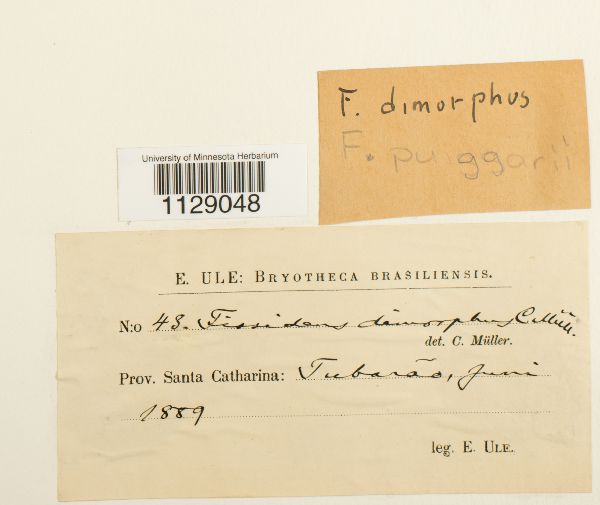 F. dimorphus
F. puiggarii
University of Minnesota Herbarium
1129048
E. ULE: BRYOTHECA BRASILIENSIS.
N:o 43. Fissidens dimorphus C. Müll.
det. C. Müller.
Prov. Santa Catharina: Tubarão, Juni
1889
leg. E. ULE.